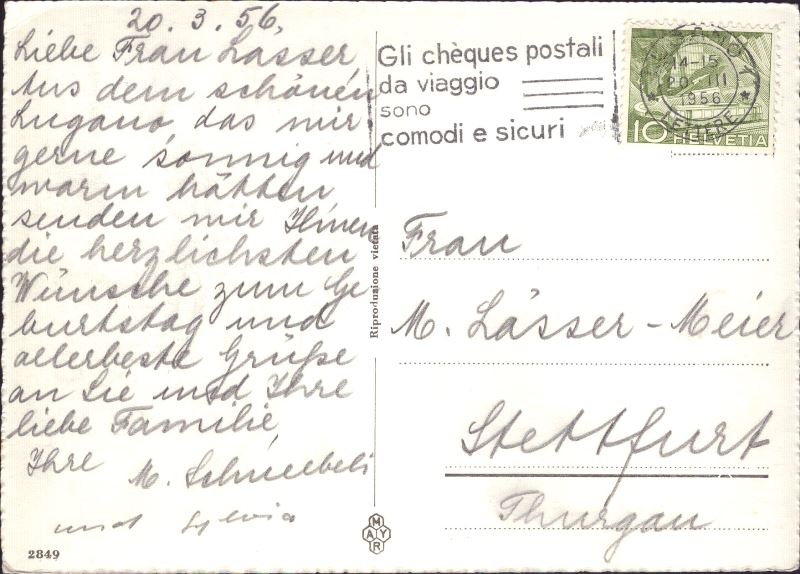 20. 3. 56
Liebe Frau Lässer,
Aus dem schönen
Lugano, das wir
gerne sonnig und
warm hätten,
senden wir Ihnen
die herzlichsten
Wünsche zum Ge
burtstag und
allerbeste Grüße
an Sie und Ihre
liebe Familie,
Ihre M. Schneebeli
und Sylvia
2849
Riproduzione vietata
MAYR
Gli chèques postali
da viaggio
sono
comodi e sicuri
14-15
20 III
1956
LETTERE
10 HELVETIA
Frau
M. Lässer-Meier
Stettfurt
Thurgau